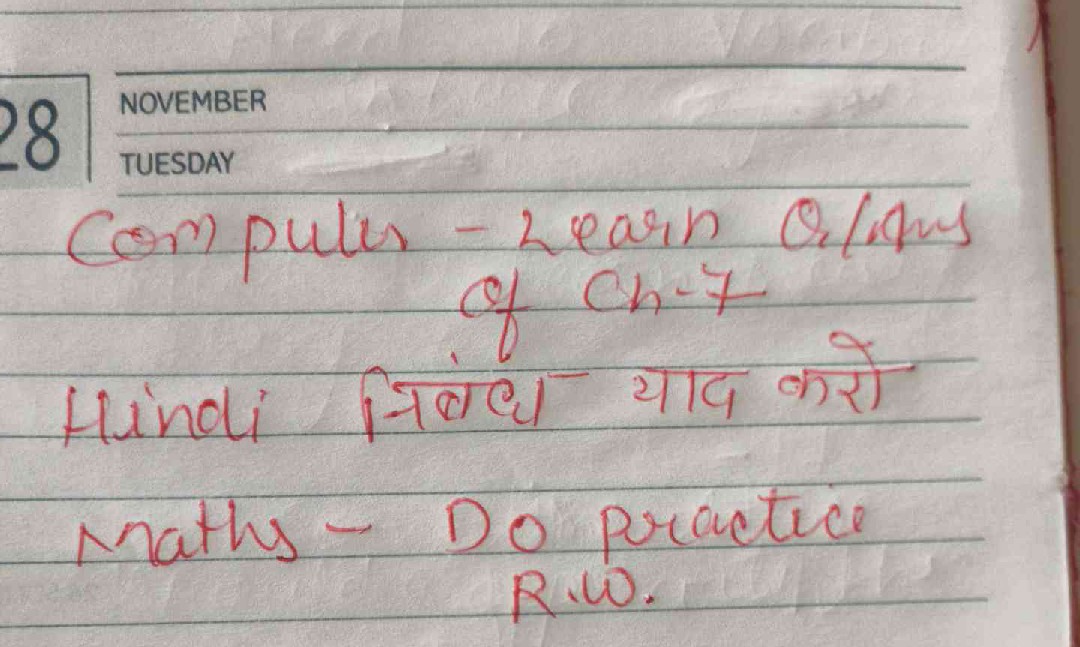 28
NOVEMBER
TUESDAY
Computer - Learn Q/Ans
of Ch-7
Hindi निबंध याद करो
Maths - Do practice
R.W.